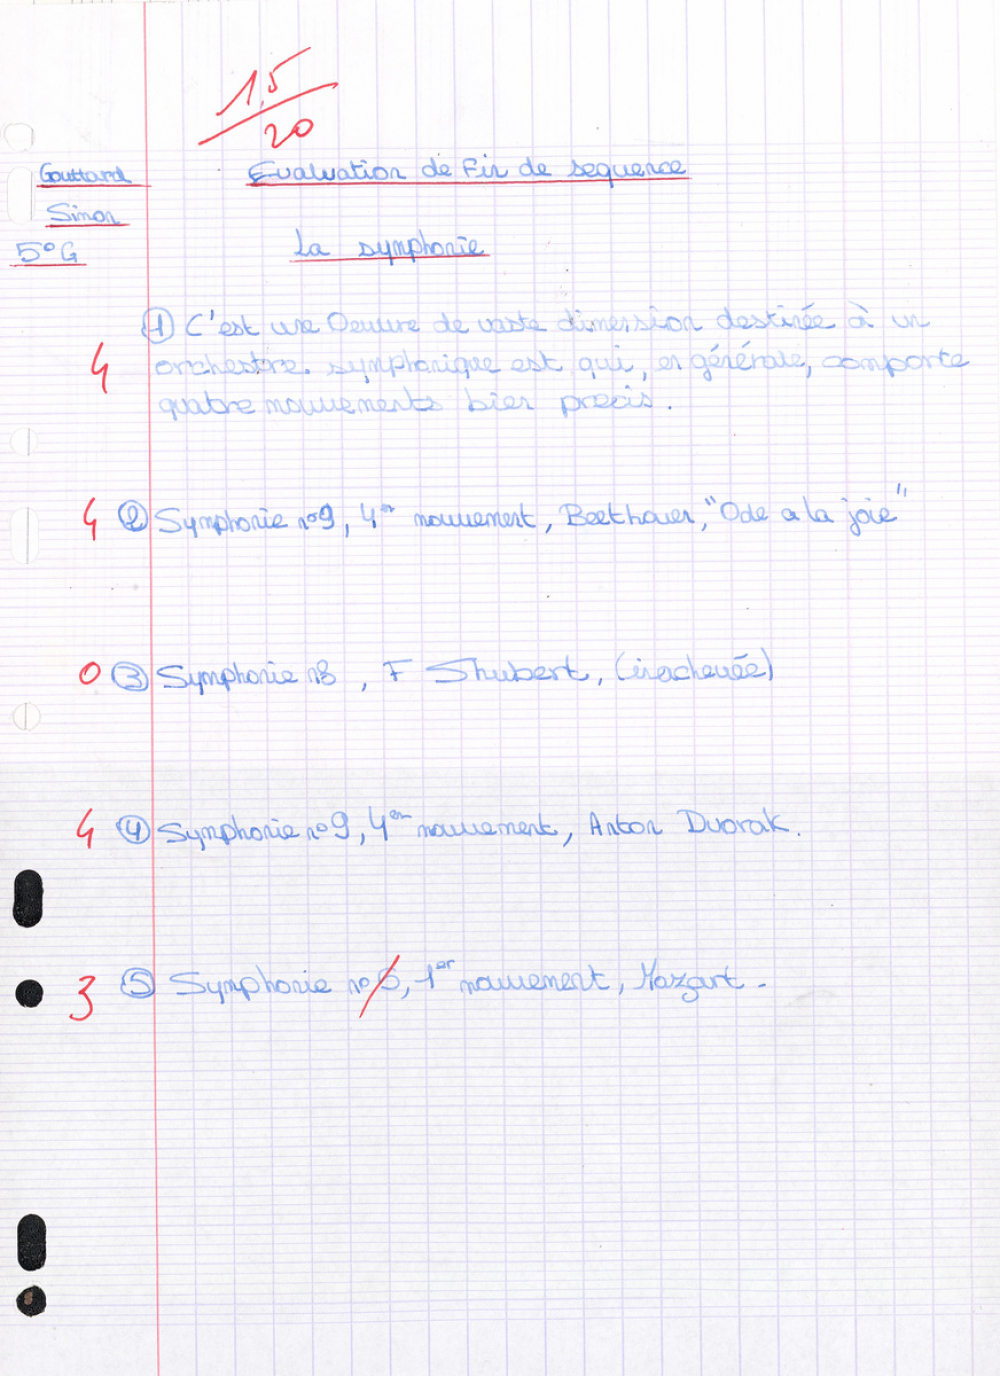 15
20
Gouttard
Evaluation de fin de sequence
Simon
5° G
La symphonie
① C'est une Oeuvre de vaste dimension destinée à un
4
orchestre. symphonique est qui, en générale, comporte
quatre mouvements bien precis.
4 ② Symphonie n°9, 4er mouvement, Beethoven, "Ode a la joie"
0 ③ Symphonie n°8, F Shubert, (inachevée)
4 ④ Symphonie n°9, 4er mouvement, Anton Dvorak.
3 ⑤ Symphonie n°5, 1er mouvement, Mozart.